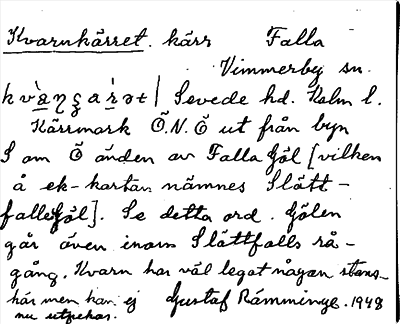 Kvarnkärret. kärr Falla
Vimmerby sn.
Sevede hd. Kalm. l.
Kärrmark Ö.N.Ö ut från byn
S om Ö änden av Falla Göl [vilken
å ek-kartan nämnes Slätt-
falleGöl]. Se detta ord. Gölen
går även inom Slättfalls rå-
gång. Kvarn har väl legat någon stans
här men kan ej Gustaf Rämminge. 1948
nu utpekas.